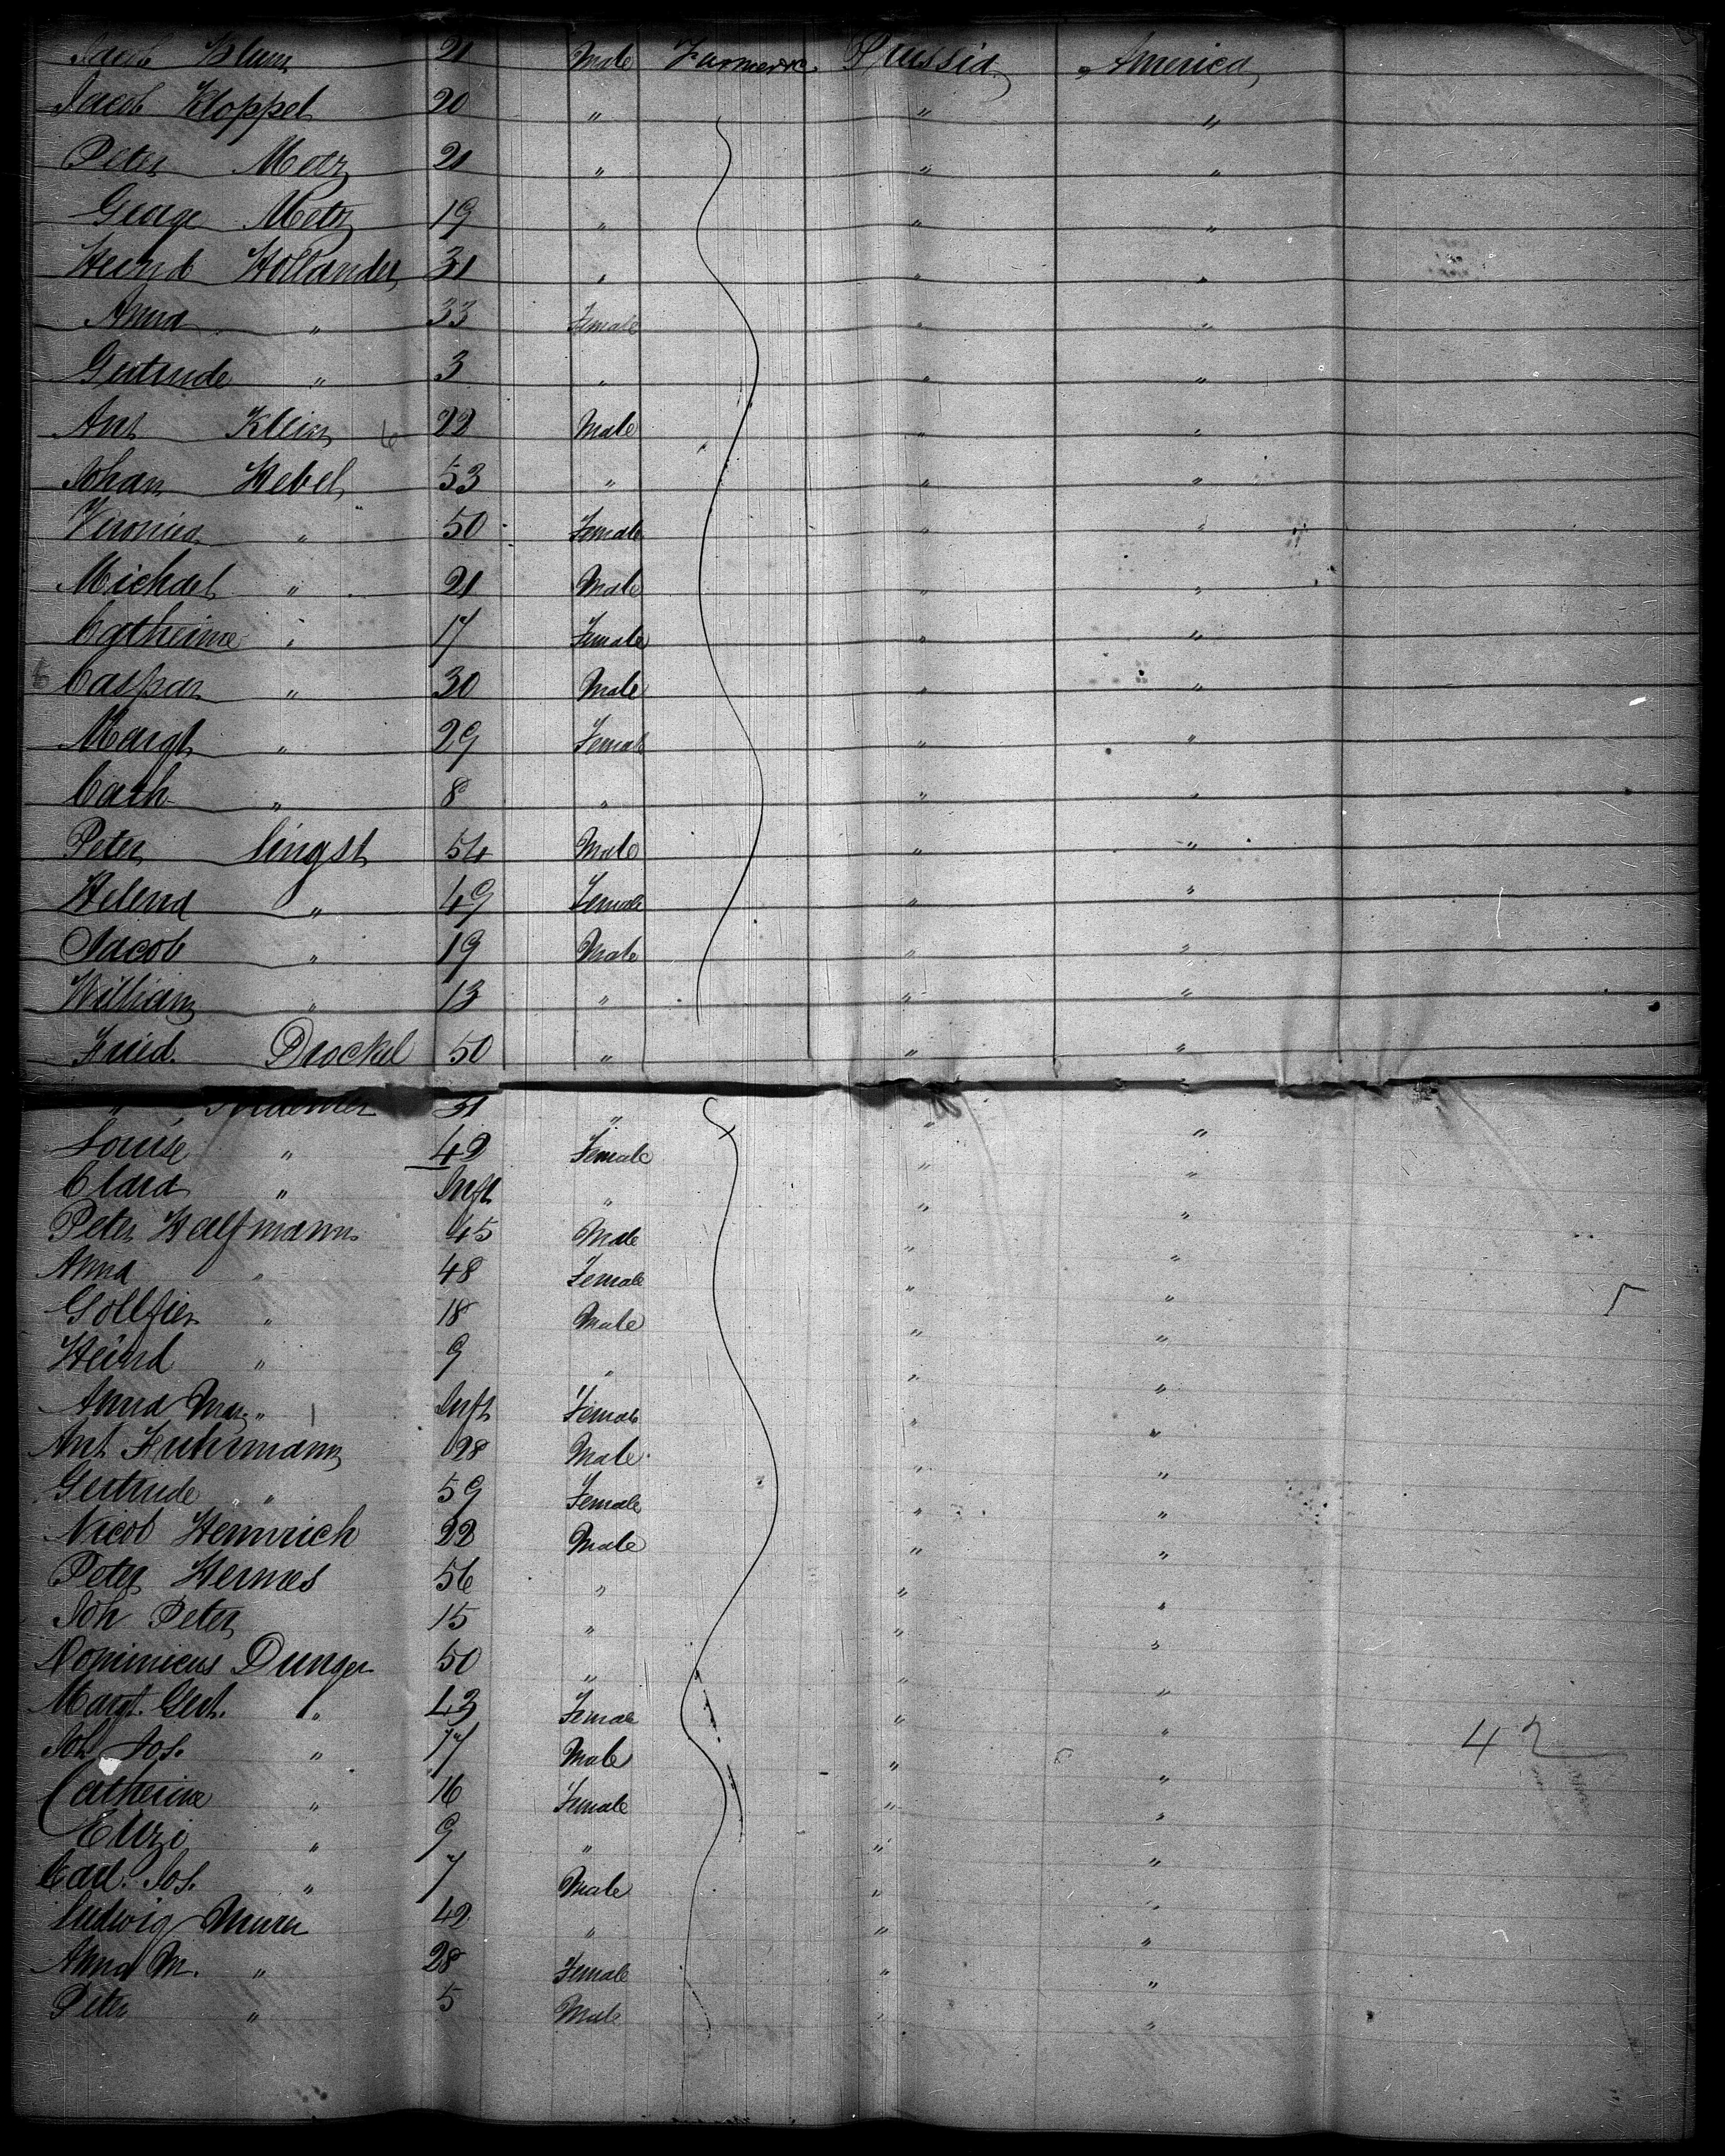 Jacob Blum 21 Male Farmer &c Prussia America
Jacob Kloppel 20 " " "
Peter Metz 21 " " "
George Metz 19 " " "
Heinrd Hollander 31 " " "
Anna " 33 Female " "
Gertrude " 3 " " "
Ant Klein 22 Male " "
Johan Hebel 53 " " "
Veronica " 50 Female " "
Michael " 21 Male " "
Catherine " 17 Female " "
Caspar " 30 Male " "
Margt " 29 Female " "
Cath " 8 " " "
Peter Lingst 54 Male " "
Helena " 49 Female " "
Jacob " 19 Male " "
William " 13 " " "
Fried. Drockel 50 " " "
" 31 " " "
Louise " 42 Female " "
Clara " Inft " " "
Peter Halfmann 45 Male " "
Anna " 48 Female " "
Gollfier " 18 Male " "
Heinrd " 9 " " "
Anna Mar " Inft Female " "
Ant Fuhrmann 28 Male " "
Gertrude " 59 Female " "
Nicob Hennrich 22 Male " "
Peter Hermes 56 " " "
Joh Peter 15 " " "
Dominicus Dunger 50 " " "
Margt. Gert. " 43 Female " "
Joh Jos. " 17 Male " " 42
Catherine " 16 Female " "
Elizi " 9 " " "
Carl. Jos. " 7 Male " "
Ludwig Murer 42 " " "
Anna M. " 28 Female " "
Peter " 5 Male " "